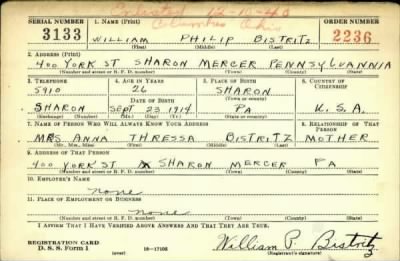 Enlisted 12-11-40
Columbus Ohio
SERIAL NUMBER 1. NAME (Print) ORDER NUMBER
3133 WILLIAM PHILIP BISTRITZ 2236
(First) (Middle) (Last)
2. ADDRESS (Print)
400 YORK ST SHARON MERCER PENNSYLVANNIA
(Number and street or R. F. D. number) (Town) (County) (State)
3. TELEPHONE 4. AGE IN YEARS 5. PLACE OF BIRTH 6. COUNTRY OF CITIZENSHIP
5910 26 SHARON
DATE OF BIRTH (Town or county)
SHARON SEPT 23 1914 PA U.S.A.
(Exchange) (Number) (Mo.) (Day) (Yr.) (State or country)
7. NAME OF PERSON WHO WILL ALWAYS KNOW YOUR ADDRESS 8. RELATIONSHIP OF THAT PERSON
MRS ANNA THRESSA BISTRITZ MOTHER
(Mr., Mrs., Miss) (First) (Middle) (Last)
9. ADDRESS OF THAT PERSON
400 YORK ST SHARON MERCER PA
(Number and street or R. F. D. number) (Town) (County) (State)
10. EMPLOYER'S NAME
none
11. PLACE OF EMPLOYMENT OR BUSINESS
none
(Number and street or R. F. D. number) (Town) (County) (State)
I AFFIRM THAT I HAVE VERIFIED ABOVE ANSWERS AND THAT THEY ARE TRUE.
REGISTRATION CARD
D. S. S. Form 1 16—17105 William P. Bistritz
(over) (Registrant's signature)